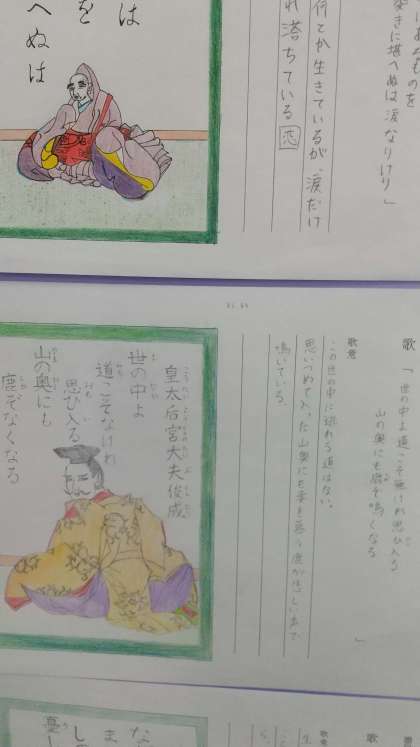 あものを
憂きに堪へぬは涙なりけり」
何とか生きているが、涙だけ
れ落ちている 恋
は
を
へぬは
歌「世の中よ道こそ無けれ思ひ入る
山の奥にも鹿ぞ鳴くなる
」
歌意
この世の中に逃れる道はない。
思いつめて入った山奥にも妻を慕う鹿が悲しい声で
鳴いている。
皇太后宮大夫俊成
世の中よ
道こそなけれ
思ひ入る
山の奥にも
鹿ぞなくなる
歌
歌意
な
ま
しの
憂し